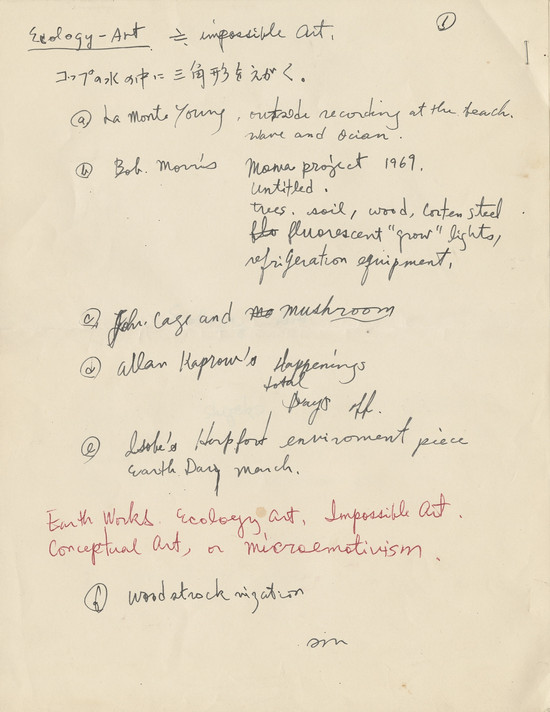 ①
Ecology-Art ≒ impossible Art.
コップの水の中に三角形をえがく。
ⓐ La Monte Young, outside recording at the beach.
wave and Ocian.
ⓑ Bob. Morris Moma project 1969.
Untitled.
trees. soil, wood, Corten steel
fluorescent "grow" lights,
refrigeration equipment.
ⓒ John. Cage and mushroom
ⓓ Allan Kaprow's Happenings
total
Days off.
ⓔ Isobe's enviroment piece
Earth Day march.
Earth Works. Ecology Art, Impossible Art.
Conceptual Art, or microemotivism.
ⓕ woodstrock nization